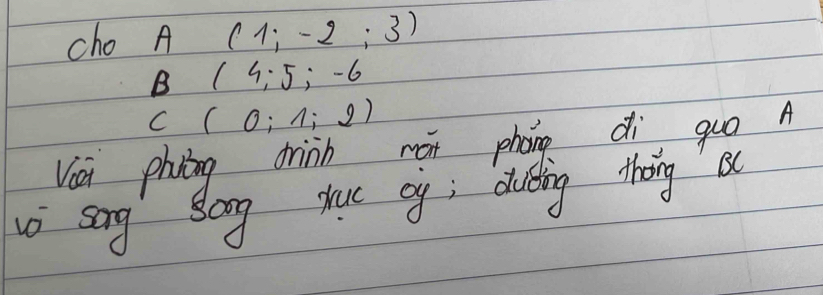 cho A (1; -2; 3)
B (4; 5; -6
C (0; 1; 2)
Viết phương trình mặt phẳng đi qua A
và song song trục oy; đường thẳng BC